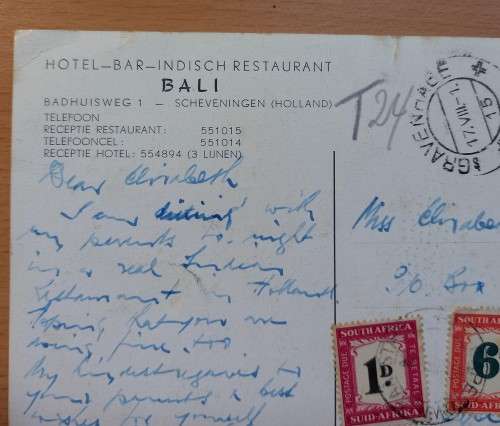 HOTEL—BAR—INDISCH RESTAURANT
BALI
BADHUISWEG 1 — SCHEVENINGEN (HOLLAND)
TELEFOON
RECEPTIE RESTAURANT: 551015
TELEFOONCEL: 551014
RECEPTIE HOTEL: 554894 (3 LIJNEN)
T 24
'S GRAVENHAGE
17.VIII.
15
Dear Elisabeth
I am with
my parents to night
in a real Indian
Restaurant in Holland
you are
fine, too
My kindest regards to
your parents & best
wishes to yourself
Miss Elizabe
c/o Box
SOUTH AFRICA
POSTAGE DUE
TE BETAAL
1D.
SUID-AFRIKA
SOUTH AFRICA
POSTAGE DUE
6
SUID-AFR